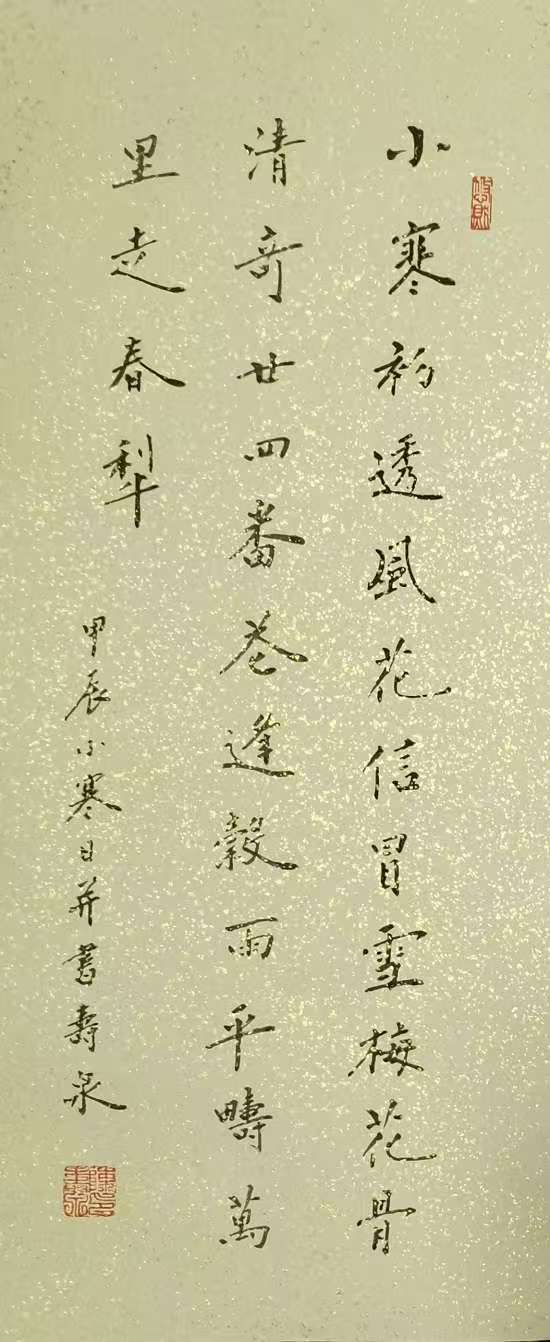 小寒初透風花信冒雪梅花骨
清奇廿四番花逢穀雨平疇萬
里走春犁
甲辰小寒日并書壽泉